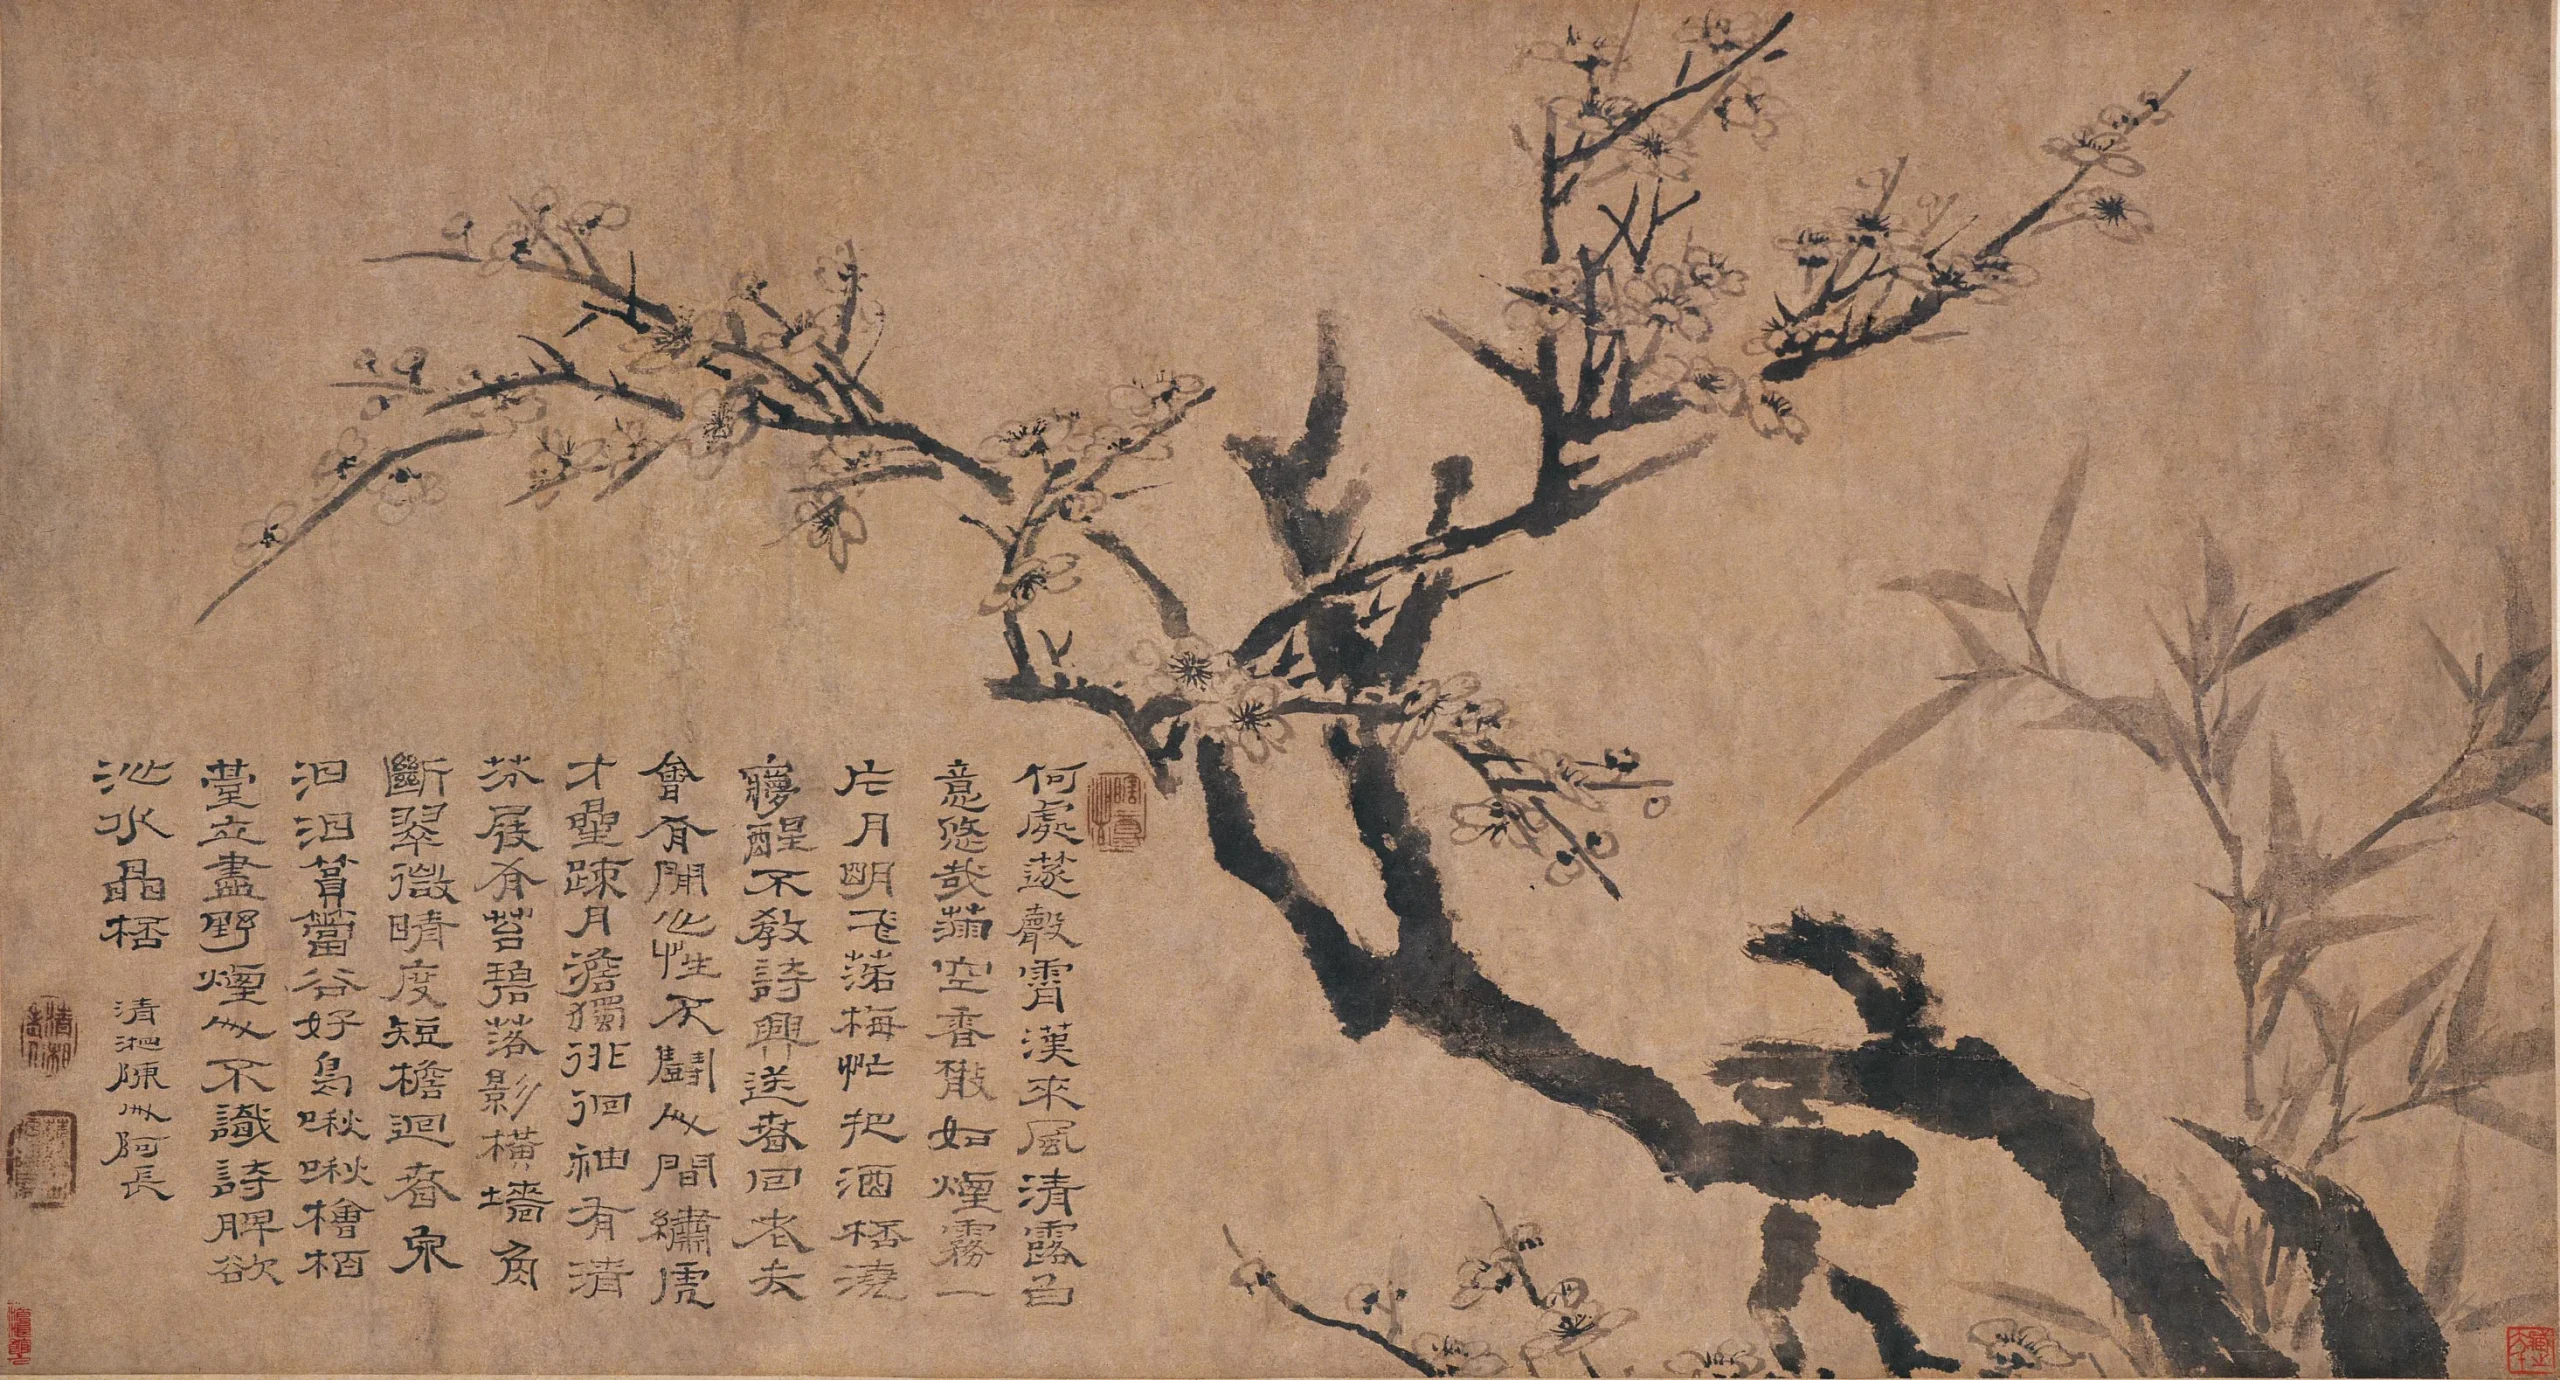 何處篴聲霄漢來風清露白
意悠哉滿空香散如煙霧一
片月明飛落梅忙把酒桮澆
夢醒不教詩興送春回老去
會有閒心性不鬭人間繡虎
才曐疎月澹獨徘徊袖有清
芬屐有苔碧落影橫墻角
斷翠微晴度短檐迴春泉
汩汩篔簹谷好鳥啾啾檜栢
臺立盡野煙人不識詩脾欲
沁水晶桮
清湘陳人阿長